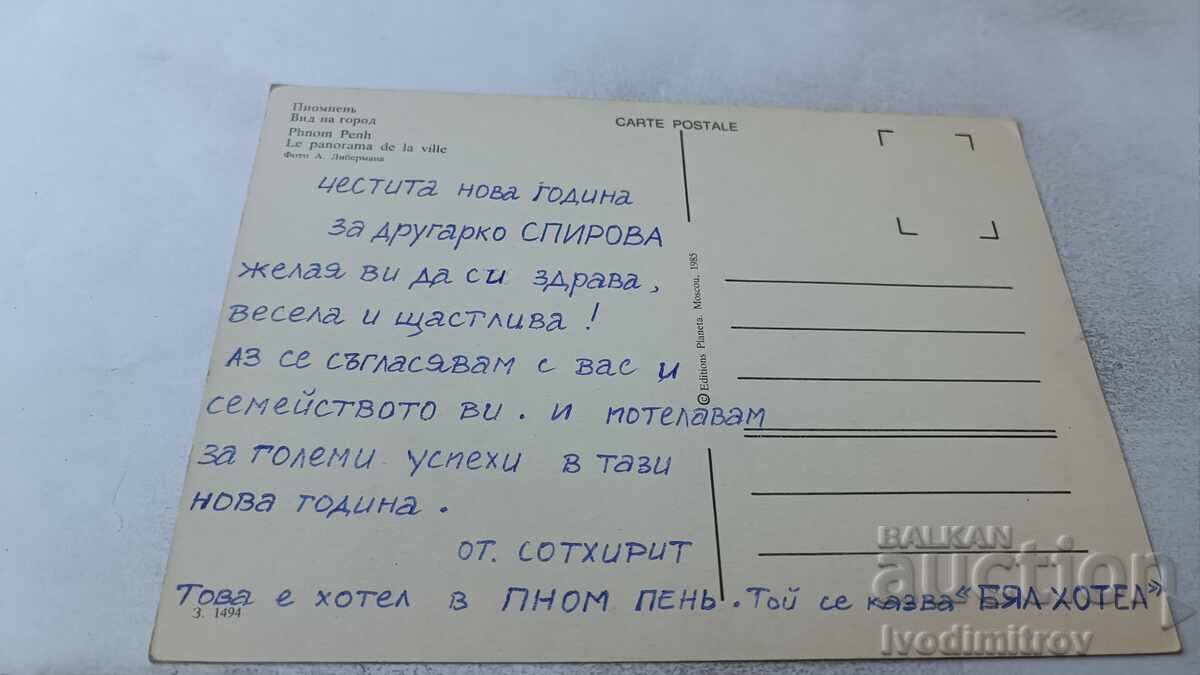 Пномпень
Вид на город
Phnom Penh
Le panorama de la ville
Фото А. Либермана
CARTE POSTALE
честита нова година
за другарко СПИРОВА
желая ви да си здрава,
весела и щастлива!
Аз се съгласявам с вас и
семейството ви. и потелавам
за големи успехи в тази
нова година.
от. СОТХИРИТ
Това е хотел в ПНОМ ПЕНЬ. Той се казва "БЯЛ ХОТЕЛ"
З. 1494
© Editions Planeta. Moscou, 1985
BALKAN
auction
Ivodimitrov